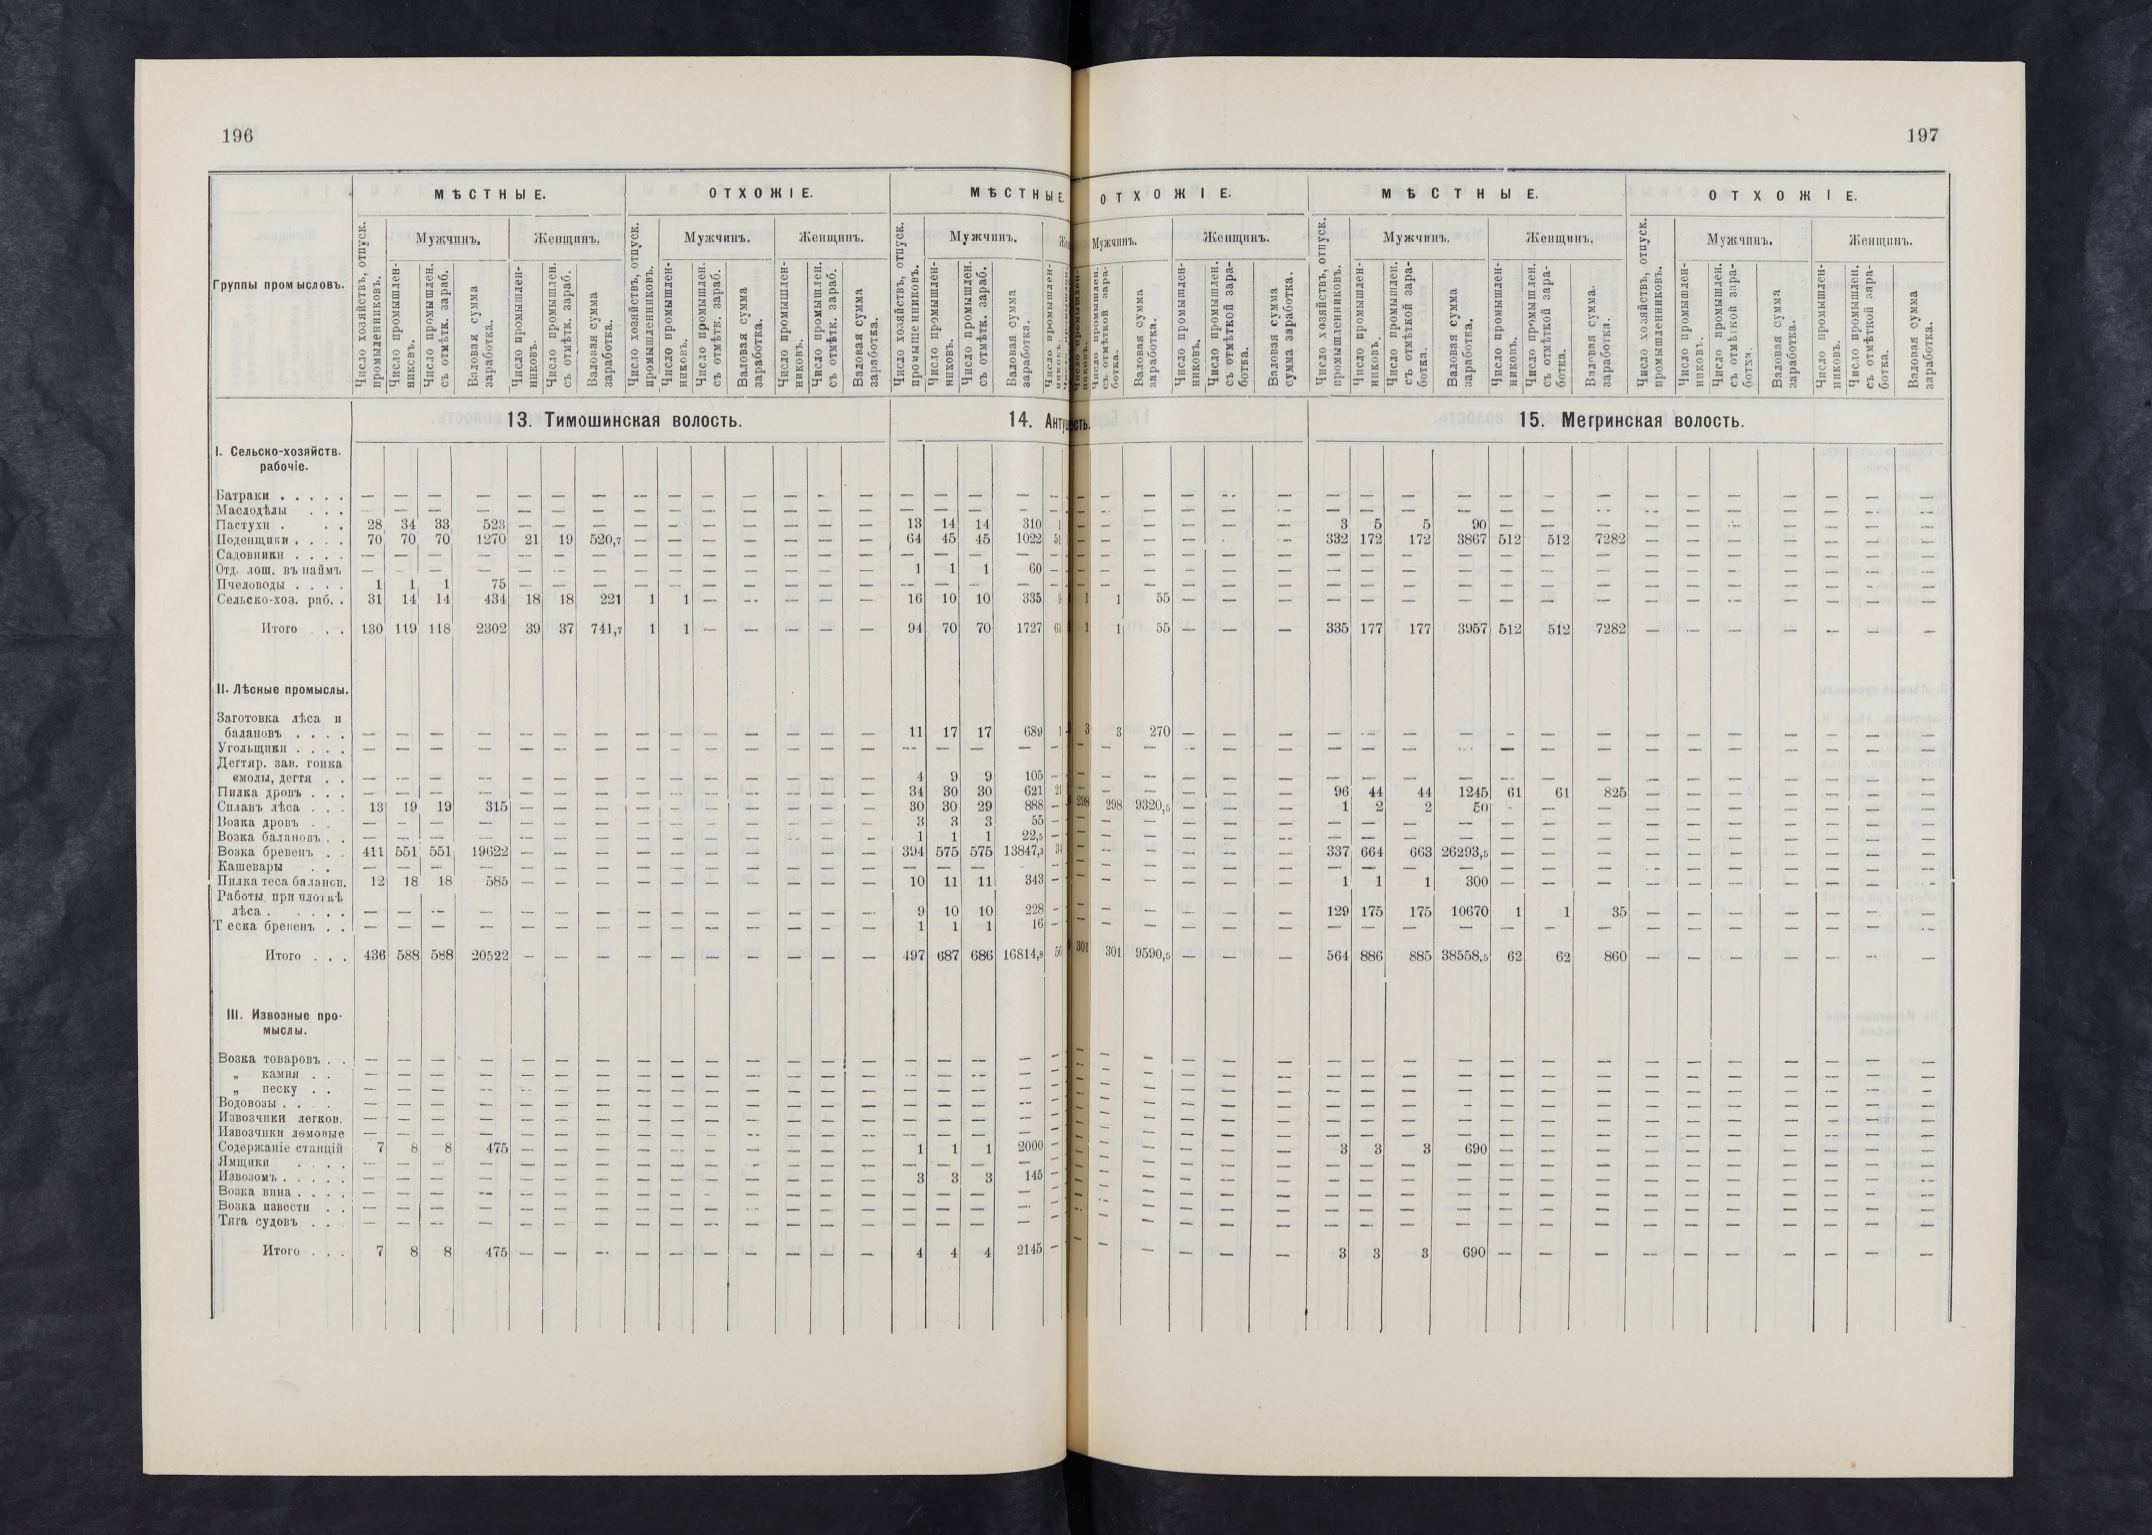 196
197
Группы промысловъ.
МѢСТНЫЕ.
ОТХОЖІЕ.
МѢСТНЫЕ.
ОТХОЖІЕ.
МѢСТНЫЕ.
ОТХОЖІЕ.
Мужчинъ. Женщинъ. Мужчинъ. Женщинъ. Мужчинъ.
Мужчинъ. Женщинъ. Мужчинъ. Женщинъ. Мужчинъ. Женщинъ.
Число хозяйствъ, отпуск. промышленниковъ.
Число промышленниковъ.
Число промышлен. съ отмѣтк. зараб.
Валовая сумма заработка.
Число промышленниковъ.
Число промышлен. съ отмѣтк. зараб.
Валовая сумма заработка.
Число хозяйствъ, отпуск. промышленниковъ.
Число промышленниковъ.
Число промышлен. съ отмѣтк. зараб.
Валовая сумма заработка.
Число промышленниковъ.
Число промышлен. съ отмѣтк. зараб.
Валовая сумма заработка.
Число хозяйствъ, отпуск. промышленниковъ.
Число промышленниковъ.
Число промышлен. съ отмѣтк. зараб.
Валовая сумма заработка.
Число промышлен. съ отмѣткой заработка.
Валовая сумма заработка.
Число промышленниковъ.
Число промышлен. съ отмѣткой заработка.
Валовая сумма сумма заработка.
Число хозяйствъ, отпуск. промышленниковъ.
Число промышленниковъ.
Число промышлен. съ отмѣткой заработка.
Валовая сумма заработка.
Число промышленниковъ.
Число промышлен. съ отмѣткой заработка.
Валовая сумма. заработка.
Число хозяйствъ, отпуск. промышленниковъ.
Число промышленниковъ.
Число промышлен. съ отмѣткой заработки.
Валовая сумма заработка.
Число промышленниковъ.
Число промышлен. съ отмѣткой заработка.
Валовая сумма заработка.
13. Тимошинская волость.
14. Анту
15. Мегринская волость.
I. Сельско-хозяйств.
рабочіе.
Батраки . . . . . — — — — — — — — — — — — — — — — — —
Маслодѣлы . . . — — — — — — — — — — — — — — — — — —
Пастухи . . . 28 34 33 523 — — — — — — — — — — 13 14 14 310 — — — — — 3 5 5 90 — — — — — — — — — —
Поденщики . . . . 70 70 70 1270 21 19 520,7 — — — — — — — 64 45 45 1022 51 — — — — — 332 172 172 3867 512 512 7282 — — — — — — —
Садовники . . . . — — — — — — — — — — — — — — — — — —
Отд. лош. въ наймъ — — — — — — — — — — — — — — 1 1 1 60 —
Пчеловоды . . . . 1 1 1 75 — — — — — — — — — — — — — —
Сельско-хоз. раб. . 31 14 14 434 18 18 221 1 1 — — — — — 16 10 10 335 9 1 1 55 — — — — — — — — — — — — — — — — —
Итого . . . 130 119 118 2302 39 37 741,7 1 1 — — — — — 94 70 70 1727 61 1 1 55 — — — 335 177 177 3957 512 512 7282 — — — — — — —
II. Лѣсные промыслы.
Заготовка лѣса и
балановъ . . . . — — — — — — — — — — — — — — 11 17 17 689 1 3 3 270 — — — — — — — — — — — — — — — — —
Угольщики . . . . — — — — — — — — — — — — — — — — — —
Дегтяр. зав. гонка
смолы, дегтя . . — — — — — — — — — — — — — — 4 9 9 105 —
Пилка дровъ . . . — — — — — — — — — — — — — — 34 30 30 621 21 — — — — — 96 44 44 1245 61 61 825 — — — — — — —
Сплавъ лѣса . . . 13 19 19 315 — — — — — — — — — — 30 30 29 888 — 298 298 9320,5 — — — 1 2 2 50 — — — — — — — — — —
Возка дровъ . . — — — — — — — — — — — — — — 3 3 3 55 —
Возка балановъ . . — — — — — — — — — — — — — — 1 1 1 22,5 —
Возка бревенъ . . 411 551 551 19622 — — — — — — — — — — 394 575 575 13847,3 34 — — — — — 337 664 663 26293,5 — — — — — — — — — —
Кашевары . . — — — — — — — — — — — — — — — — — —
Пилка теса баланов. 12 18 18 585 — — — — — — — — — — 10 11 11 343 — — — — — — 1 1 1 300 — — — — — — — — — —
Работы при плоткѣ
лѣса . . . . . — — — — — — — — — — — — — — 9 10 10 228 — — — — — — 129 175 175 10670 1 1 35 — — — — — — —
Теска бревенъ . . — — — — — — — — — — — — — — 1 1 1 16 —
Итого . . . 436 588 588 20522 — — — — — — — — — — 497 687 686 16814,8 56 301 301 9590,5 — — — 564 886 885 38558,5 62 62 860 — — — — — — —
III. Извозные про-
мыслы.
Возка товаровъ . . — — — — — — — — — — — — — — — — — —
„ камня . . — — — — — — — — — — — — — — — — — —
„ песку . . — — — — — — — — — — — — — — — — — —
Водовозы . . . . — — — — — — — — — — — — — — — — — —
Извозчики легков. — — — — — — — — — — — — — — — — — —
Извозчики ломовые — — — — — — — — — — — — — — — — — —
Содержаніе станцій 7 8 8 475 — — — — — — — — — — 1 1 1 2000 — — — — — — 3 3 3 690 — — — — — — — — — —
Ямщики . . . . — — — — — — — — — — — — — — — — — —
Извозомъ . . . . . — — — — — — — — — — — — — — 3 3 3 145 —
Возка вина . . . . — — — — — — — — — — — — — — — — — —
Возка извести . . — — — — — — — — — — — — — — — — — —
Тяга судовъ . . — — — — — — — — — — — — — — — — — —
Итого . . . 7 8 8 475 — — — — — — — — — — 4 4 4 2145 — — — — — — 3 3 3 690 — — — — — — — — — —